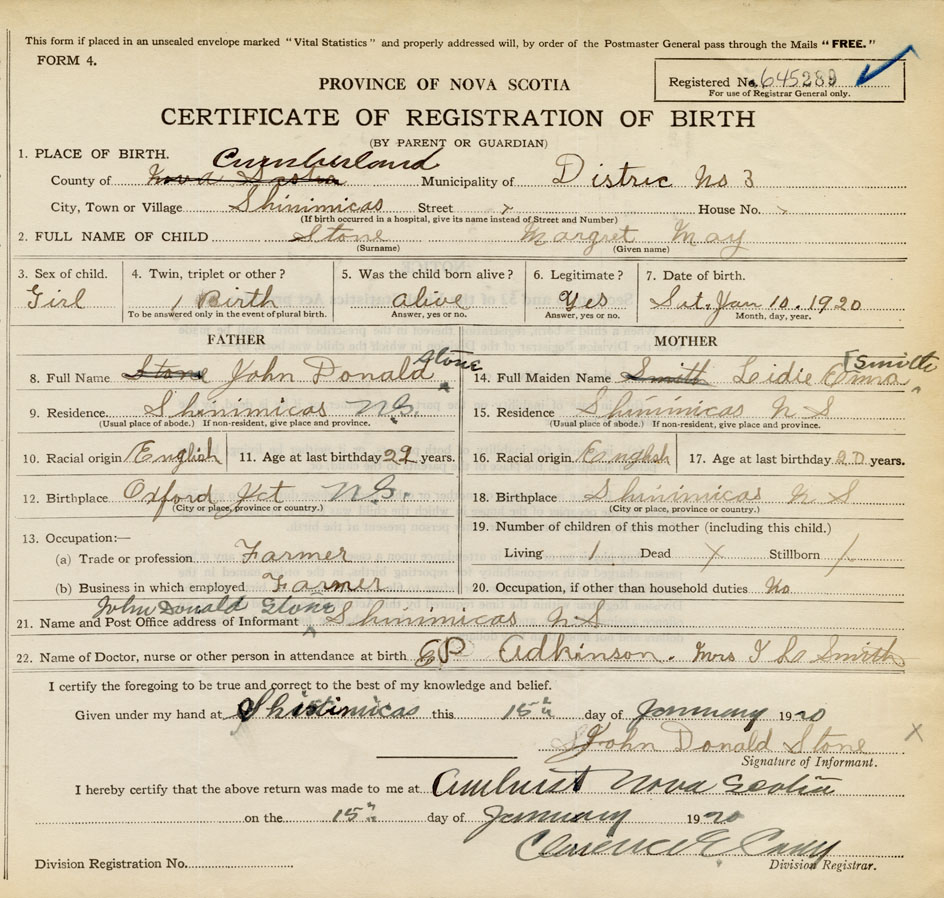 This form if placed in an unsealed envelope marked "Vital Statistics" and properly addressed will, by order of the Postmaster General pass through the Mails "FREE."
FORM 4.
Registered No. 645289
For use of Registrar General only.
PROVINCE OF NOVA SCOTIA
CERTIFICATE OF REGISTRATION OF BIRTH
(BY PARENT OR GUARDIAN)
1. PLACE OF BIRTH. Cumberland
County of Nova Scotia Municipality of Distric No 3
City, Town or Village Shinimicas Street x House No. x
(If birth occurred in a hospital, give its name instead of Street and Number)
2. FULL NAME OF CHILD Stone Margret May
(Surname) (Given name)
3. Sex of child. 4. Twin, triplet or other? 5. Was the child born alive? 6. Legitimate? 7. Date of birth.
Girl 1 Birth alive Yes Sat. Jan 10. 1920
To be answered only in the event of plural birth. Answer, yes or no. Answer, yes or no. Month, day, year.
FATHER MOTHER
8. Full Name Stone John Donald Stone 14. Full Maiden Name Smith Lidie Smith
9. Residence. Shinimicas N.S. 15. Residence Shinimicas N S
(Usual place of abode.) If non-resident, give place and province. (Usual place of abode.) If non-resident, give place and province.
10. Racial origin English 11. Age at last birthday years. 16. Racial origin English 17. Age at last birthday 20 years.
12. Birthplace Oxford Jct N.S. 18. Birthplace Shinimicas N S
(City or place, province or country.) (City or place, province or country.)
13. Occupation:— 19. Number of children of this mother (including this child.)
(a) Trade or profession Farmer Living 1 Dead x Stillborn /
(b) Business in which employed Farmer 20. Occupation, if other than household duties No
John Donald Stone
21. Name and Post Office address of Informant Shinimicas N.S
22. Name of Doctor, nurse or other person in attendance at birth Adkinson. Mrs Smith
I certify the foregoing to be true and correct to the best of my knowledge and belief.
Given under my hand at Shinimicas this 15th day of January 1920
John Donald Stone x
Signature of Informant.
I hereby certify that the above return was made to me at Amherst Nova Scotia
on the 15th day of January 1920
Clarence
Division Registration No. Division Registrar.